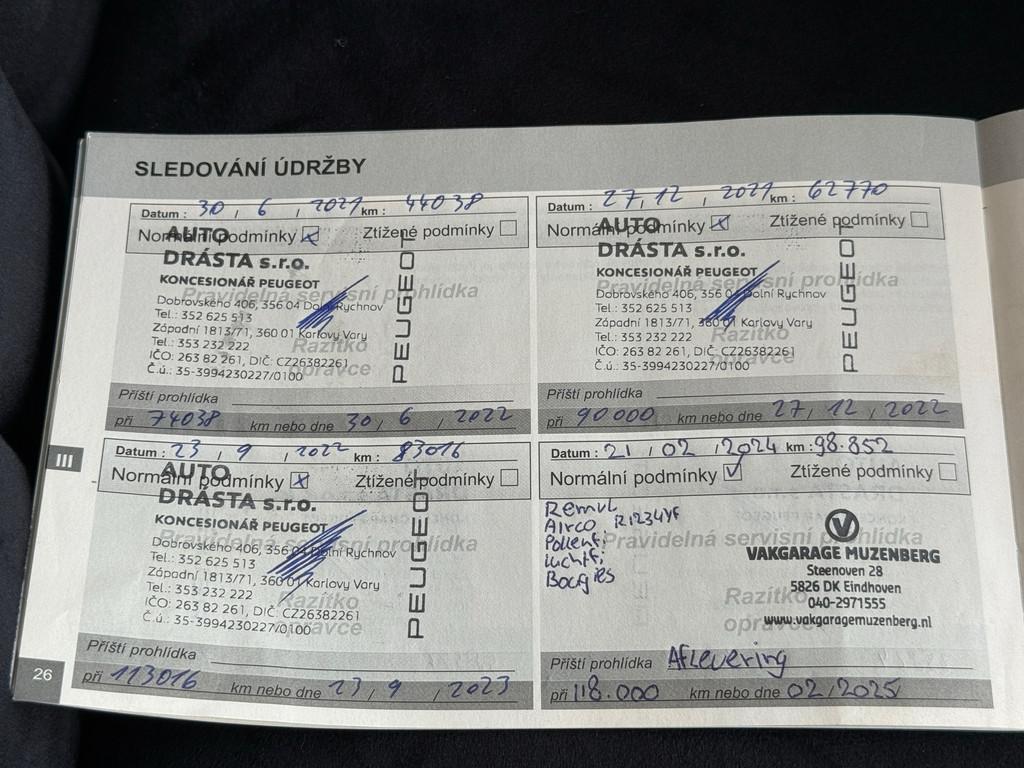 SLEDOVÁNÍ ÚDRŽBY
Datum : 30 / 6 / 2021 km : 44038
Normální podmínky ☒ Ztížené podmínky ☐
AUTO
DRÁSTA s.r.o.
KONCESIONÁŘ PEUGEOT
Pravidelná servisní prohlídka
Dobrovského 406, 356 04 Dolní Rychnov
Tel.: 352 625 513
Západní 1813/71, 360 01 Karlovy Vary
Tel.: 353 232 222
Razítko
IČO: 263 82 261, DIČ: CZ26382261
opravce
Č.ú.: 35-3994230227/0100
PEUGEOT
Příští prohlídka
při 74038 km nebo dne 30 / 6 / 2022
Datum : 27 / 12 / 2021 km : 62770
Normální podmínky ☒ Ztížené podmínky ☐
AUTO
DRÁSTA s.r.o.
KONCESIONÁŘ PEUGEOT
Pravidelná servisní prohlídka
Dobrovského 406, 356 04 Dolní Rychnov
Tel.: 352 625 513
Západní 1813/71, 360 01 Karlovy Vary
Tel.: 353 232 222
Razítko
IČO: 263 82 261, DIČ: CZ26382261
opravce
Č.ú.: 35-3994230227/0100
PEUGEOT
Příští prohlídka
při 90000 km nebo dne 27 / 12 / 2022
III
Datum : 23 / 9 / 2022 km : 83016
Normální podmínky ☒ Ztížené podmínky ☐
AUTO
DRÁSTA s.r.o.
KONCESIONÁŘ PEUGEOT
Pravidelná servisní prohlídka
Dobrovského 406, 356 04 Dolní Rychnov
Tel.: 352 625 513
Západní 1813/71, 360 01 Karlovy Vary
Tel.: 353 232 222
Razítko
IČO: 263 82 261, DIČ: CZ26382261
opravce
Č.ú.: 35-3994230227/0100
PEUGEOT
Příští prohlídka
při 113016 km nebo dne 23 / 9 / 2023
Datum : 21 / 02 / 2024 km : 98.852
Normální podmínky ☑ Ztížené podmínky ☐
Remvl.
Airco R1234YF
Pollenf.
Luchtf.
Bougies
Pravidelná servisní prohlídka
V
VAKGARAGE MUZENBERG
Steenoven 28
5826 DK Eindhoven
Razítko
040-2971555
opravce
www.vakgaragemuzenberg.nl
Příští prohlídka Aflevering
při 118.000 km nebo dne 02 / 2025
26